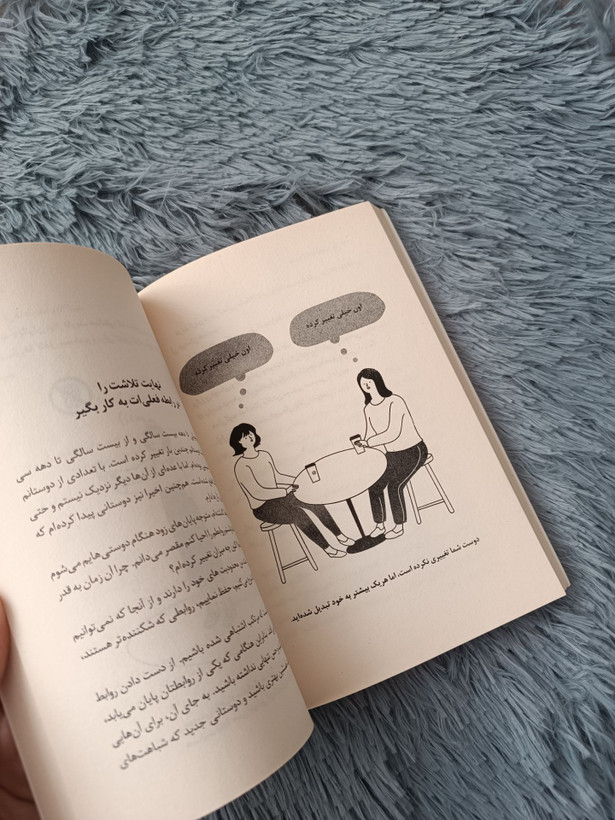 اون خیلی تغییر کرده
اون خیلی تغییر کرده
دوست شما تغییری نکرده است، اما هر یک بیشتر به خود تبدیل شده‌اید.
نهایت تلاشت را
رابطه فعلی‌ات به کار بگیر
دهه بیست سالگی و از بیست سالگی تا دهه سی
چندین بار تغییر کرده است. با تعدادی از دوستانم
عده‌ای از آن‌ها دیگر نزدیک نیستم و حتی
همچنین اخیرا نیز دوستانی پیدا کرده‌ام که
دارم.
متوجه پایان‌های زود هنگام دوستی‌هایم می‌شوم
احیا کنم مقصر می‌دانم. چرا آن زمان به قدر
چه میزان تغییر کرده‌ام؟
محدودیت های خود را دارند و از آنجا که نمی‌توانیم
حفظ نماییم، روابطی که شکننده‌تر هستند،
مرتکب اشتباهی شده باشیم. از دست دادن روابط
بنابراین هنگامی که یکی از روابطتان پایان می‌یابد،
تنهایی نداشته باشید. به جای آن، برای آن‌هایی
بهتری باشید و دوستانی جدید که شباهت‌های